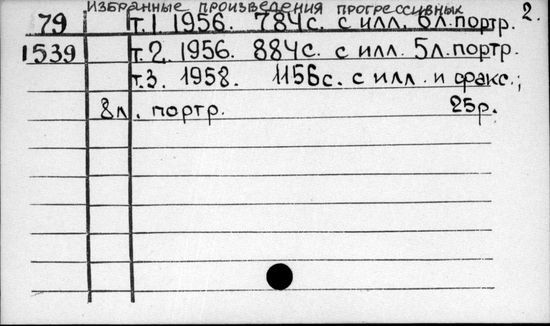 Избранные произведения прогрессивных 2.
79 т.1 1956. 784с. с илл. 6л.портр.
1539 т.2. 1956. 884с. с илл. 5л.портр.
т.3. 1958. 1156с. с илл. и факс.;
8л. портр. 25р.